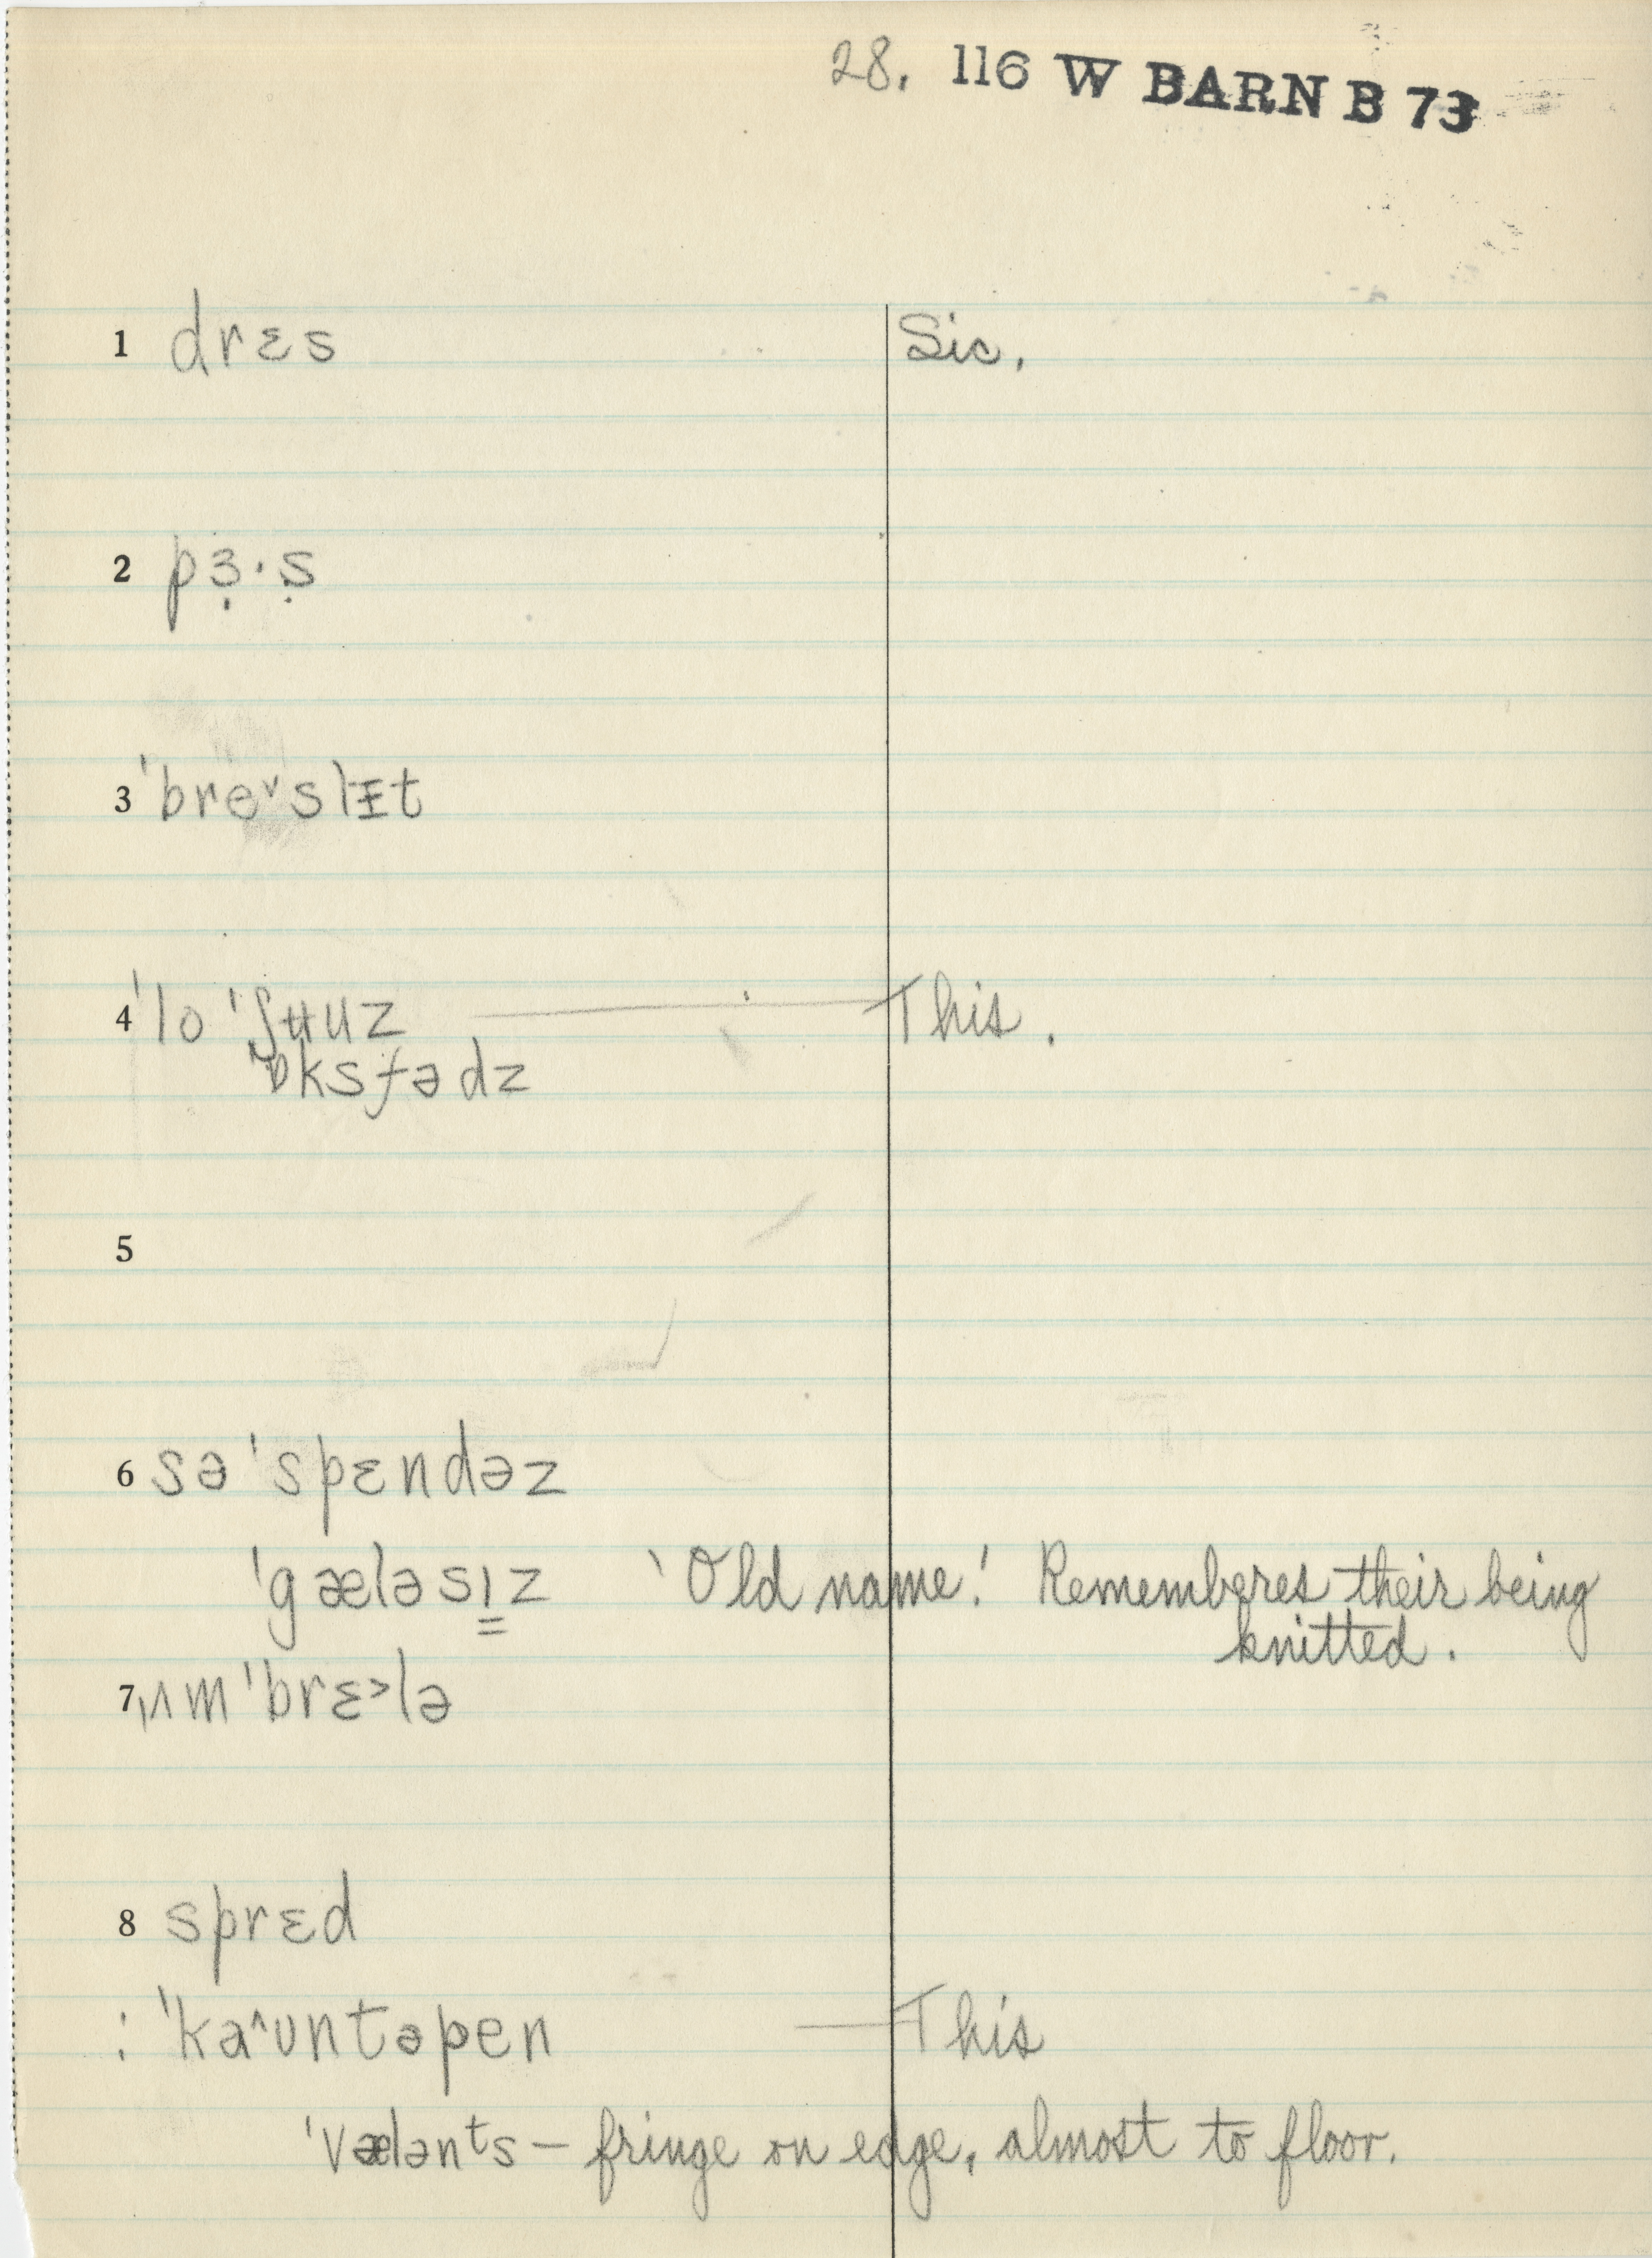 28. 116 W BARN B 73
1 drɛs Sic.
2 pɜ̣·ṣ
3 ˈbre˅slᵻt
4 ˈlo ˈʃʉuz This.
ˈɒksfədz
5
6 səˈspɛndəz
ˈgæləsɪ̳z 'Old name.' Rememberes their being
knitted.
7 ˌʌmˈbrɛ˃lə
8 sprɛd
: ˈka˄ʊntəpen This
ˈvælənᵗs – fringe on edge, almost to floor.